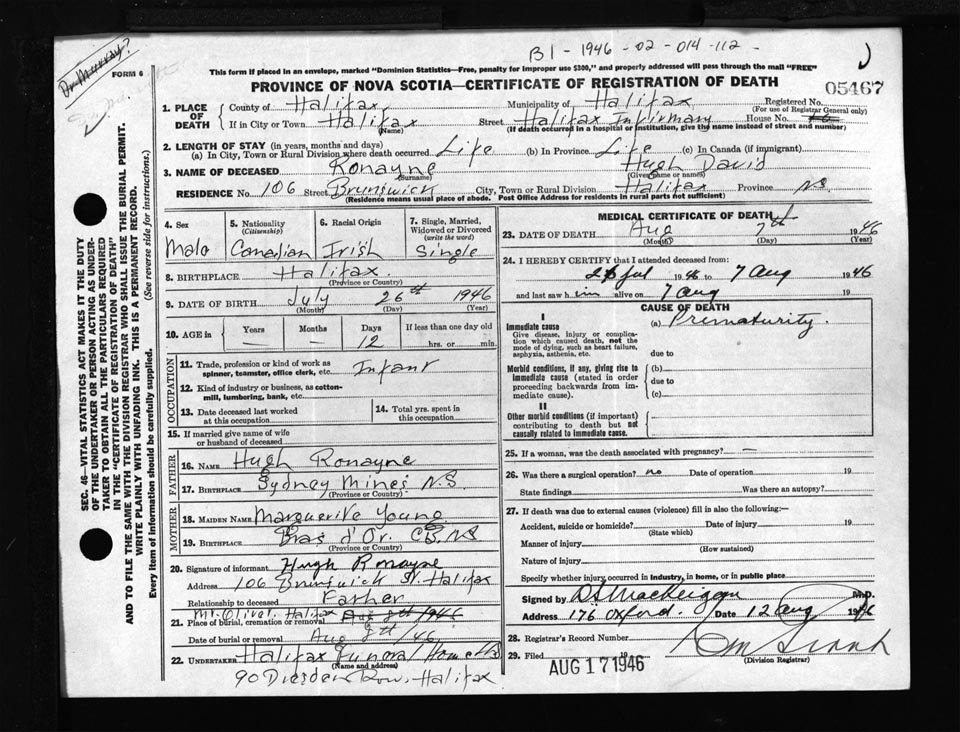 B1 - 1946 - 02 - 014 - 112 -
Dr Murray?
FORM 6
This form if placed in an envelope, marked "Dominion Statistics—Free, penalty for improper use $300," and properly addressed will pass through the mail "FREE"
PROVINCE OF NOVA SCOTIA—CERTIFICATE OF REGISTRATION OF DEATH
05467
1. PLACE OF DEATH
County of Halifax Municipality of Halifax Registered No.
(For use of Registrar General only)
If in City or Town Halifax Street Halifax Infirmary House No.
(Name) (If death occurred in a hospital or institution, give the name instead of street and number)
2. LENGTH OF STAY (in years, months and days)
(a) In City, Town or Rural Division where death occurred Life (b) In Province Life (c) In Canada (if immigrant)
3. NAME OF DECEASED Ronayne Hugh David
(Surname) (Given name or names)
RESIDENCE No. 106 Street Brunswick City, Town or Rural Division Halifax Province N.S.
(Residence means usual place of abode. Post Office Address for residents in rural parts not sufficient)
4. Sex
Male
5. Nationality (Citizenship)
Canadian
6. Racial Origin
Irish
7. Single, Married, Widowed or Divorced (write the word)
Single
8. BIRTHPLACE Halifax.
(Province or Country)
9. DATE OF BIRTH July 26th 1946
(Month) (Day) (Year)
10. AGE in Years Months Days If less than one day old
— — 12 hrs. or min.
OCCUPATION
11. Trade, profession or kind of work as spinner, teamster, office clerk, etc. Infant
12. Kind of industry or business, as cotton-mill, lumbering, bank, etc.
13. Date deceased last worked at this occupation
14. Total yrs. spent in this occupation
15. If married give name of wife or husband of deceased
FATHER
16. NAME Hugh Ronayne
17. BIRTHPLACE Sydney Mines N.S.
(Province or Country)
MOTHER
18. MAIDEN NAME Marguerite Young
19. BIRTHPLACE Bras d'Or. C.B. N.S
(Province or Country)
20. Signature of informant Hugh Ronayne
Address 106 Brunswick St. Halifax
Relationship to deceased Father
Mt. Olivet. Halifax
21. Place of burial, cremation or removal Aug 8th/1946
Date of burial or removal Aug 8th/46
22. UNDERTAKER Halifax Funeral Home
(Name and address)
90 Dresden Row, Halifax
MEDICAL CERTIFICATE OF DEATH
23. DATE OF DEATH Aug 7th 1946
(Month) (Day) (Year)
24. I HEREBY CERTIFY that I attended deceased from:
26 Jul 1946 to 7 Aug 1946
and last saw him alive on 7 Aug 19
CAUSE OF DEATH
I
Immediate cause
Give disease, injury or complication which caused death, not the mode of dying, such as heart failure, asphyxia, asthenia, etc.
(a) Prematurity.
due to
Morbid conditions, if any, giving rise to immediate cause (stated in order proceeding backwards from immediate cause).
(b)
due to
(c)
II
Other morbid conditions (if important) contributing to death but not causally related to immediate cause.
25. If a woman, was the death associated with pregnancy? —
26. Was there a surgical operation? no Date of operation 19
State findings Was there an autopsy?
27. If death was due to external causes (violence) fill in also the following:—
Accident, suicide or homicide? Date of injury 19
(State which)
Manner of injury
(How sustained)
Nature of injury
Specify whether injury occurred in industry, in home, or in public place
Signed by D S MacKeigan M.D.
Address 176 Oxford. Date 12 Aug 1946
28. Registrar's Record Number
29. Filed AUG 17 1946 19
(Division Registrar)
SEC. 46—VITAL STATISTICS ACT MAKES IT THE DUTY OF THE UNDERTAKER OR PERSON ACTING AS UNDERTAKER TO OBTAIN ALL THE PARTICULARS REQUIRED IN THE "CERTIFICATE OF REGISTRATION OF DEATH" AND TO FILE THE SAME WITH THE DIVISION REGISTRAR WHO SHALL ISSUE THE BURIAL PERMIT.
WRITE PLAINLY WITH UNFADING INK. THIS IS A PERMANENT RECORD.
Every item of information should be carefully supplied. (See reverse side for instructions.)